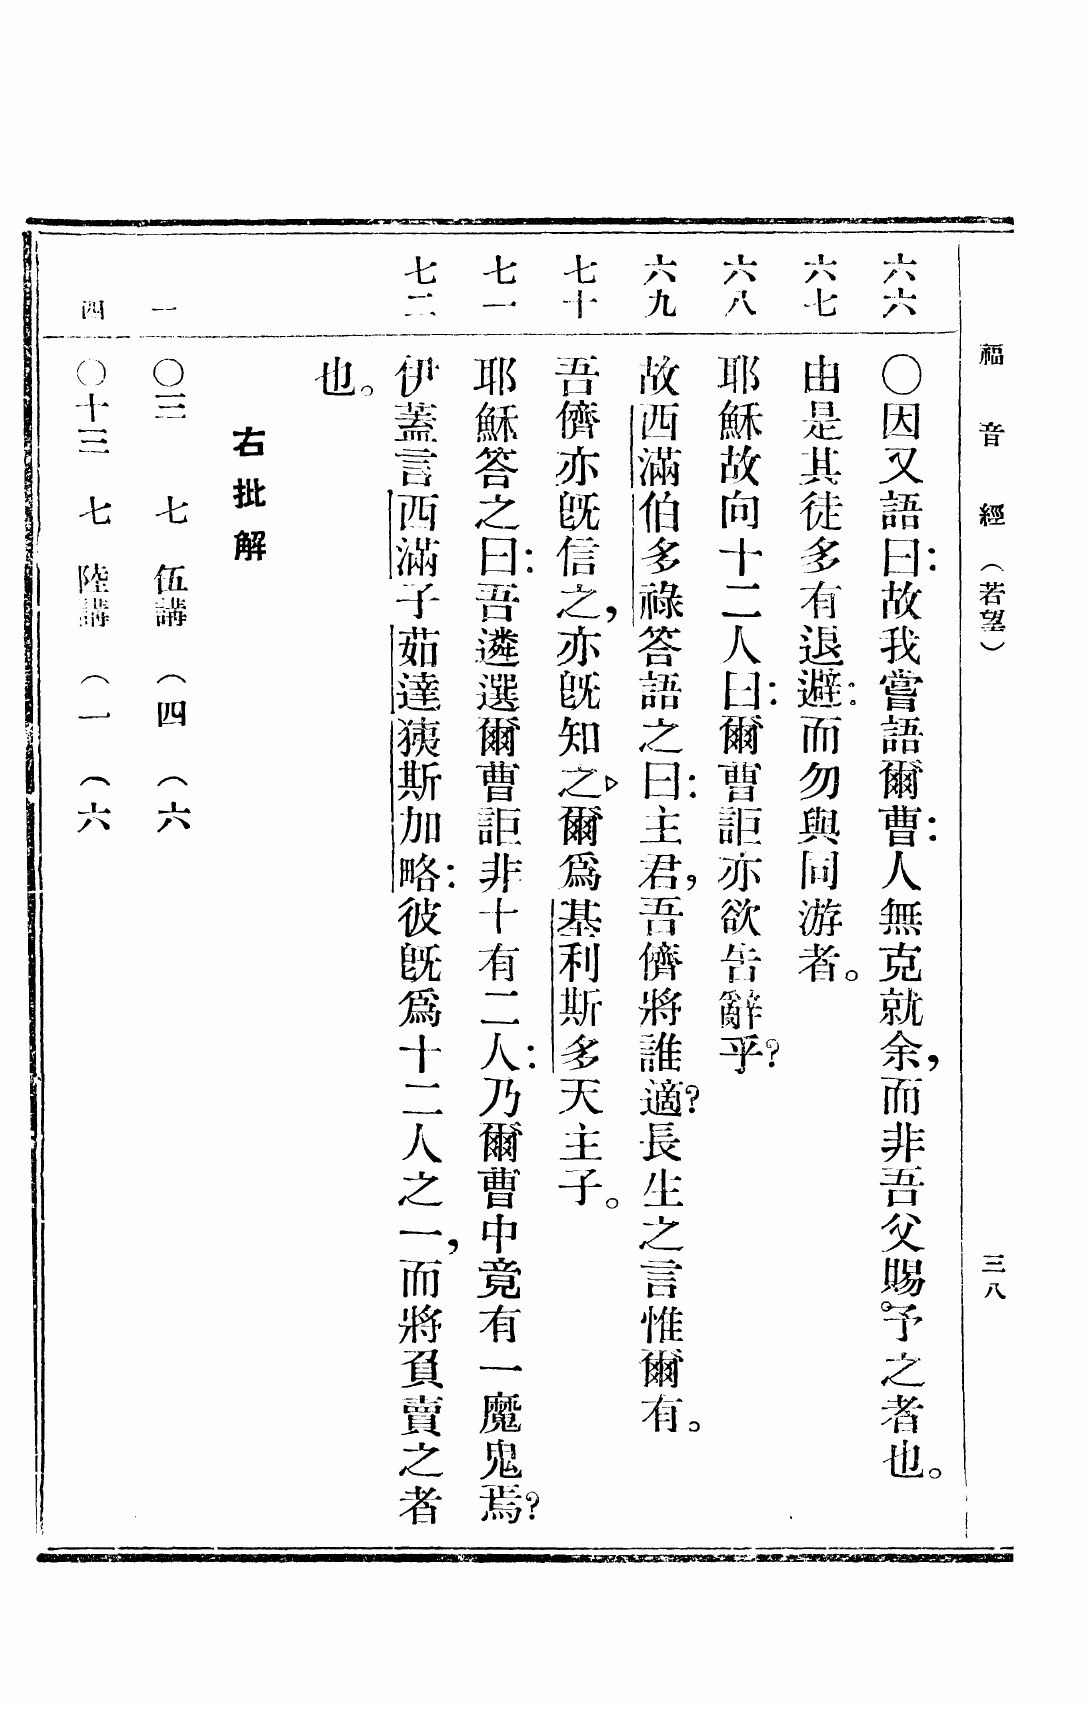 福音經（若望）　三八
六六　〇因又語曰：故我嘗語爾曹：人無克就余，而非吾父賜予之者也。
六七　由是其徒多有退避：而勿與同游者。
六八　耶穌故向十二人曰：爾曹詎亦欲告辭乎？
六九　故西滿伯多祿答語之曰：主君，吾儕將誰適？長生之言惟爾有。
七十　吾儕亦旣信之，亦旣知之▷爾爲基利斯多天主子。
七一　耶穌答之曰：吾遴選爾曹詎非十有二人：乃爾曹中竟有一魔鬼焉？
七二　伊蓋言西滿子茹達狭斯加略：彼旣爲十二人之一，而將負賣之者
也。
右批解
一　〇三　七　伍講（四（六
四　〇十三　七　陸講（一（六